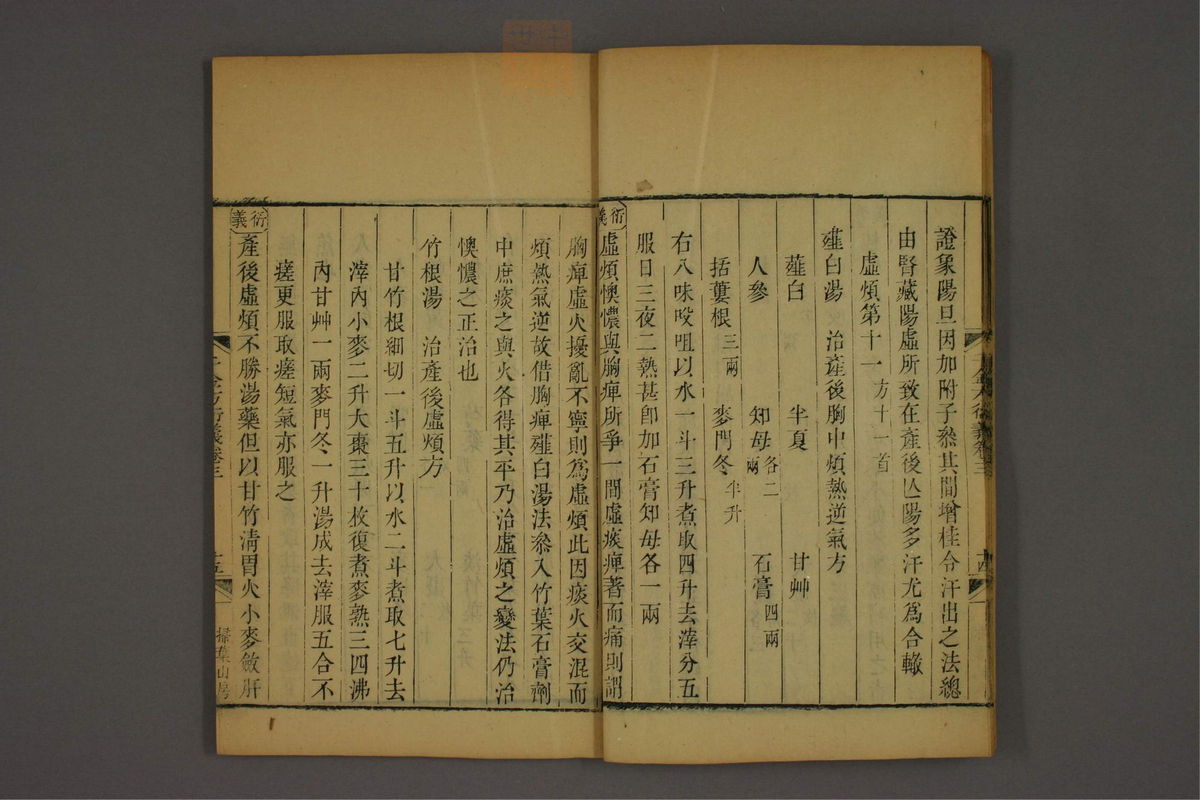 證象陽旦因加附子叅其間增桂令汗出之法總
由腎藏陽虛所致在產後亾陽多汗尤爲合轍
虛煩第十一方十一首
薤白湯 治產後胸中煩熱逆氣方
薤白 半夏 甘艸
人參 知母各二兩 石膏四兩
括蔞根三兩 麥門冬半升
右八味㕮咀以水一斗三升煮取四升去滓分五
服日三夜二熱甚卽加石膏知母各一兩
衍義 虛煩懊憹與胸痺所爭一間虛痰痺著而痛則謂
胸痺虛火擾亂不寧則爲虛煩此因痰火交混而
煩熱氣逆故借胸痺薤白湯法叅入竹葉石膏劑
中庶痰之與火各得其平乃治虛煩之變法仍治
懊憹之正治也
竹根湯 治產後虛煩方
甘竹根細切一斗五升以水二斗煮取七升去
滓內小麥二升大棗三十枚復煮麥熟三四沸
內甘艸一兩麥門冬一升湯成去滓服五合不
瘥更服取瘥短氣亦服之
衍義 產後虛煩不勝湯藥但以甘竹淸胃火小麥斂肝
千金方衍義卷三 十五 掃葉山房